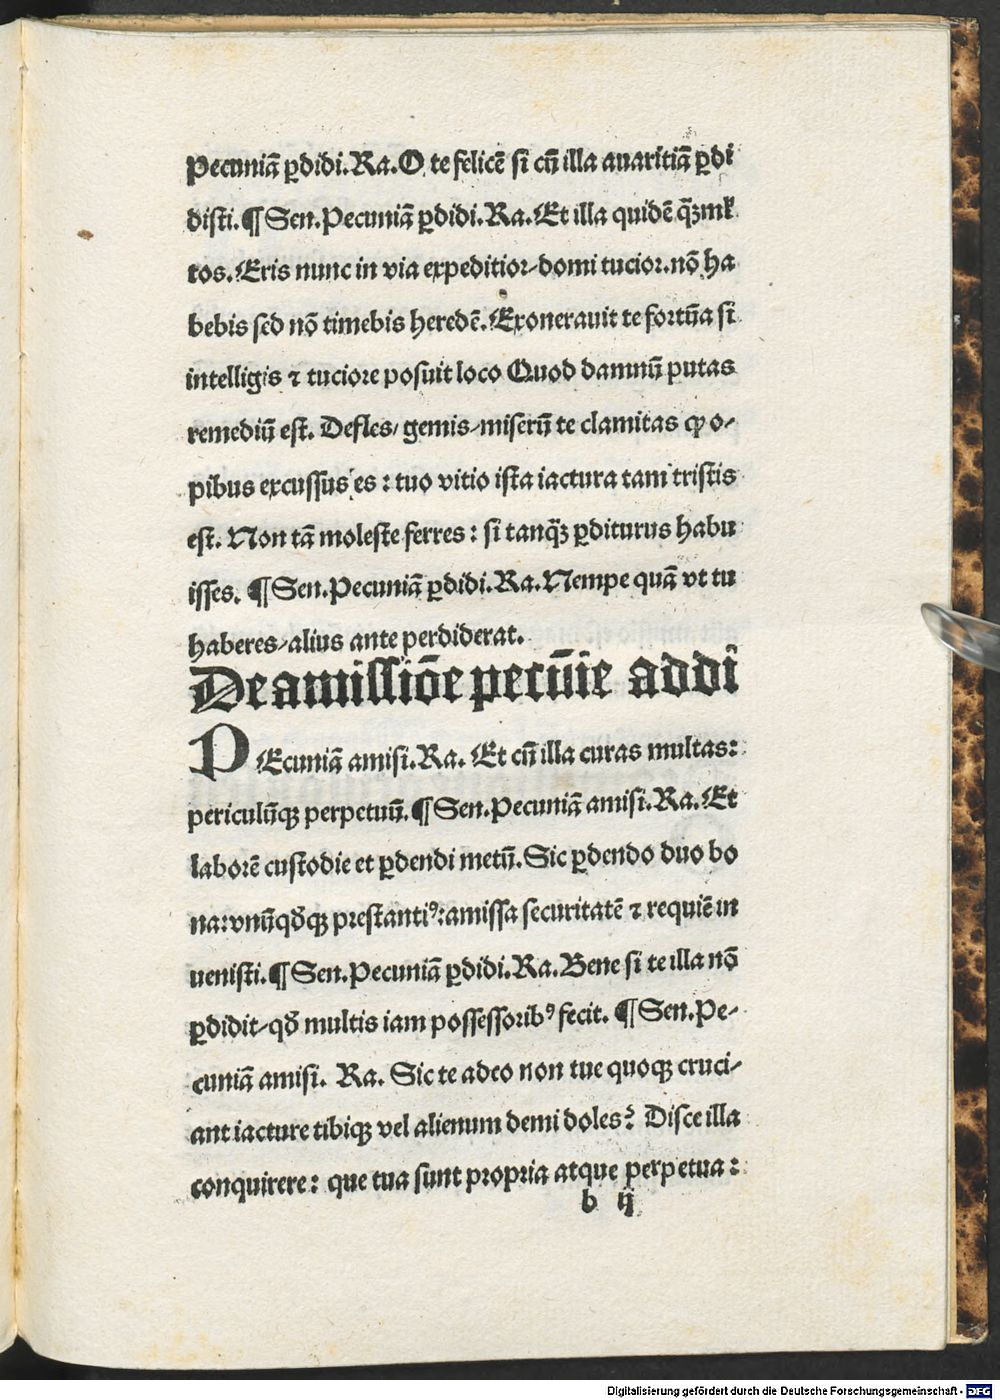 Pecuniā ꝑdidi. Ra. O te felicē si cū illa auaritiā ꝑdi
disti. ¶ Sen. Pecuniā ꝑdidi. Ra. Et illa quidē
tos. Eris nunc in via expeditior/ domi tucior. nō ha
bebis sed nō timebis heredē. Exonerauit te fortūa si
intelligis ⁊ tuciore posuit loco Quod damnū putas
remediū est. Defles/ gemis/ miserū te clamitas ꝙ o/
pibus excussus es : tuo vitio ista iactura tam tristis
est. Non tā moleste ferres : si tanqꝫ ꝑditurus habu
isses. ¶ Sen. Pecuniā ꝑdidi. Ra. Nempe quā vt tu
haberes/ alius ante perdiderat.
De amissiōe pecūie addī
PEcuniā amisi. Ra. Et cū illa curas multas:
periculūqꝫ perpetuū. ¶ Sen. Pecuniā amisi. Ra. Et
laborē custodie et ꝑdendi metū. Sic ꝑdendo duo bo
na: vnūqđqꝫ prestantiꝰ: amissa securitatē ⁊ requiē in
uenisti. ¶ Sen. Pecuniā ꝑdidi. Ra. Bene si te illa nō
ꝑdidit/ qđ multis iam possessoribꝰ fecit. ¶ Sen. Pe/
cuniā amisi. Ra. Sic te adeo non tue quoqꝫ cruci/
ant iacture tibiqꝫ vel alienum demi doles? Disce illa
conquirere: que tua sunt propria atque perpetua:
b ij
Digitalisierung gefördert durch die Deutsche Forschungsgemeinschaft - DFG